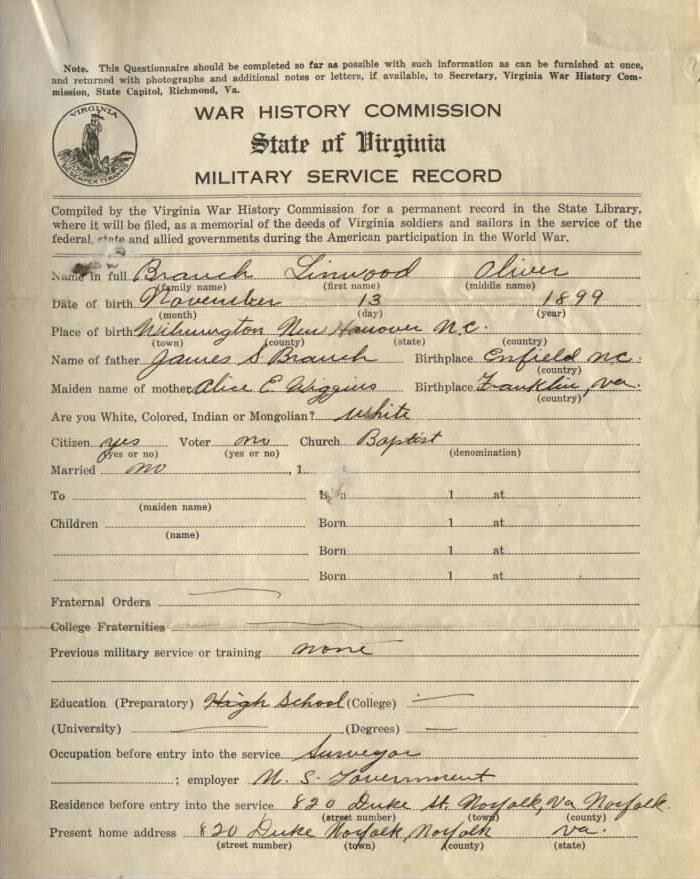 Note. This Questionnaire should be completed so far as possible with such information as can be furnished at once,
and returned with photographs and additional notes or letters, if available, to Secretary, Virginia War History Com-
mission, State Capitol, Richmond, Va.
VIRGINIA
SIC SEMPER TYRANNIS
WAR HISTORY COMMISSION
State of Virginia
MILITARY SERVICE RECORD
Compiled by the Virginia War History Commission for a permanent record in the State Library,
where it will be filed, as a memorial of the deeds of Virginia soldiers and sailors in the service of the
federal, state and allied governments during the American participation in the World War.
Name in full Branch Linwood Oliver
(family name) (first name) (middle name)
Date of birth November 13 1899
(month) (day) (year)
Place of birth Wilmington New Hanover N.C.
(town) (county) (state) (country)
Name of father James S Branch Birthplace Enfield N.C.
(country)
Maiden name of mother Alice E Wiggins Birthplace Franklin, Va.
(country)
Are you White, Colored, Indian or Mongolian? White
Citizen yes Voter no Church Baptist
(yes or no) (yes or no) (denomination)
Married no , 1
To Born 1 at
(maiden name)
Children Born 1 at
(name)
Born 1 at
Born 1 at
Fraternal Orders
College Fraternities
Previous military service or training none
Education (Preparatory) High School (College)
(University) (Degrees)
Occupation before entry into the service Surveyor
; employer U. S. Government
Residence before entry into the service 820 Duke St. Norfolk, Va Norfolk.
(street number) (town) (county)
Present home address 820 Duke Norfolk, Norfolk Va.
(street number) (town) (county) (state)